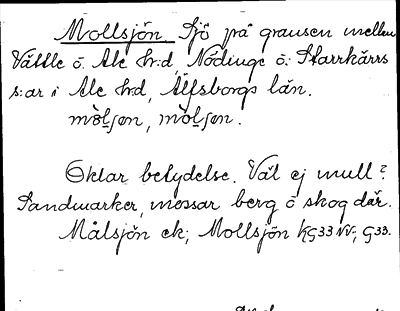 Mollsjön Sjö på gränsen mellan
Vättle o. Ale h:d, Nödinge o. Starrkärrs
s:ar i Ale h:d, Älfsborgs län.
mòlʃən, mòlʃən.
Oklar betydelse. Väl ej mull?
Sandmarker, mossar berg o skog där.
Målsjön ek; Mollsjön KG33 NV; G33.